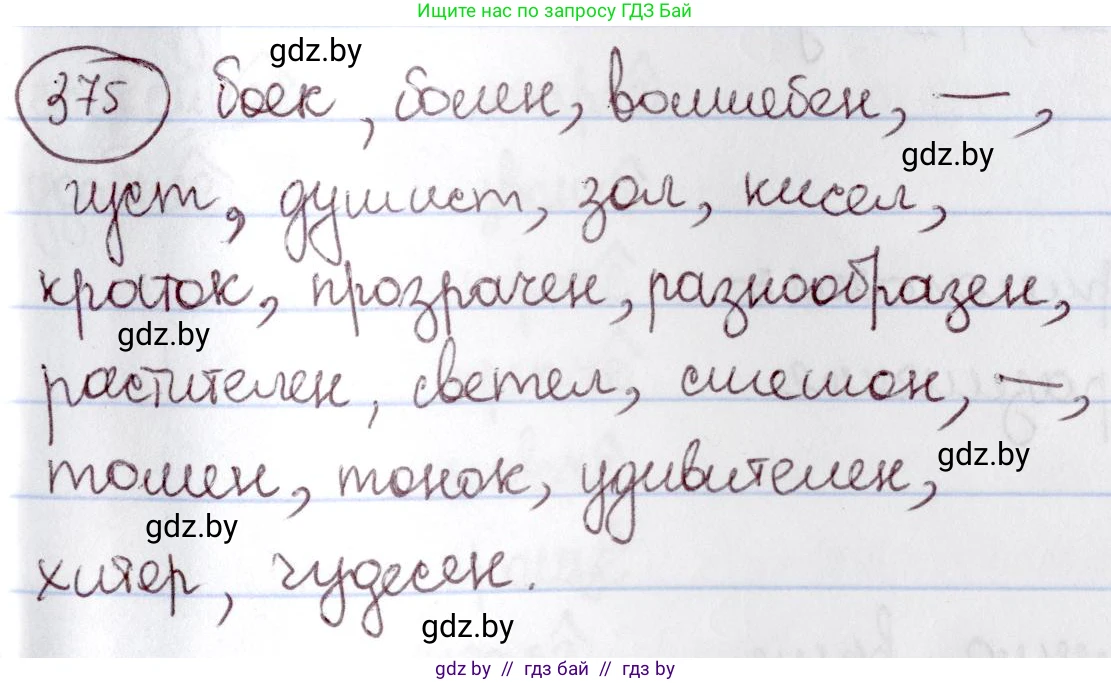 Ищите нас по запросу ГДЗ Бай
gdz.by
375 боек, болен, волшебен, —,
gdz.by
густ, душист, зол, кисел,
краток, прозрачен, разнообразен,
gdz.by
растителен, светел, смешон, —,
gdz.by
томен, тонок, удивителен,
gdz.by
хитер, чудесен.
gdz.by
gdz by // гдз бай // гдз by